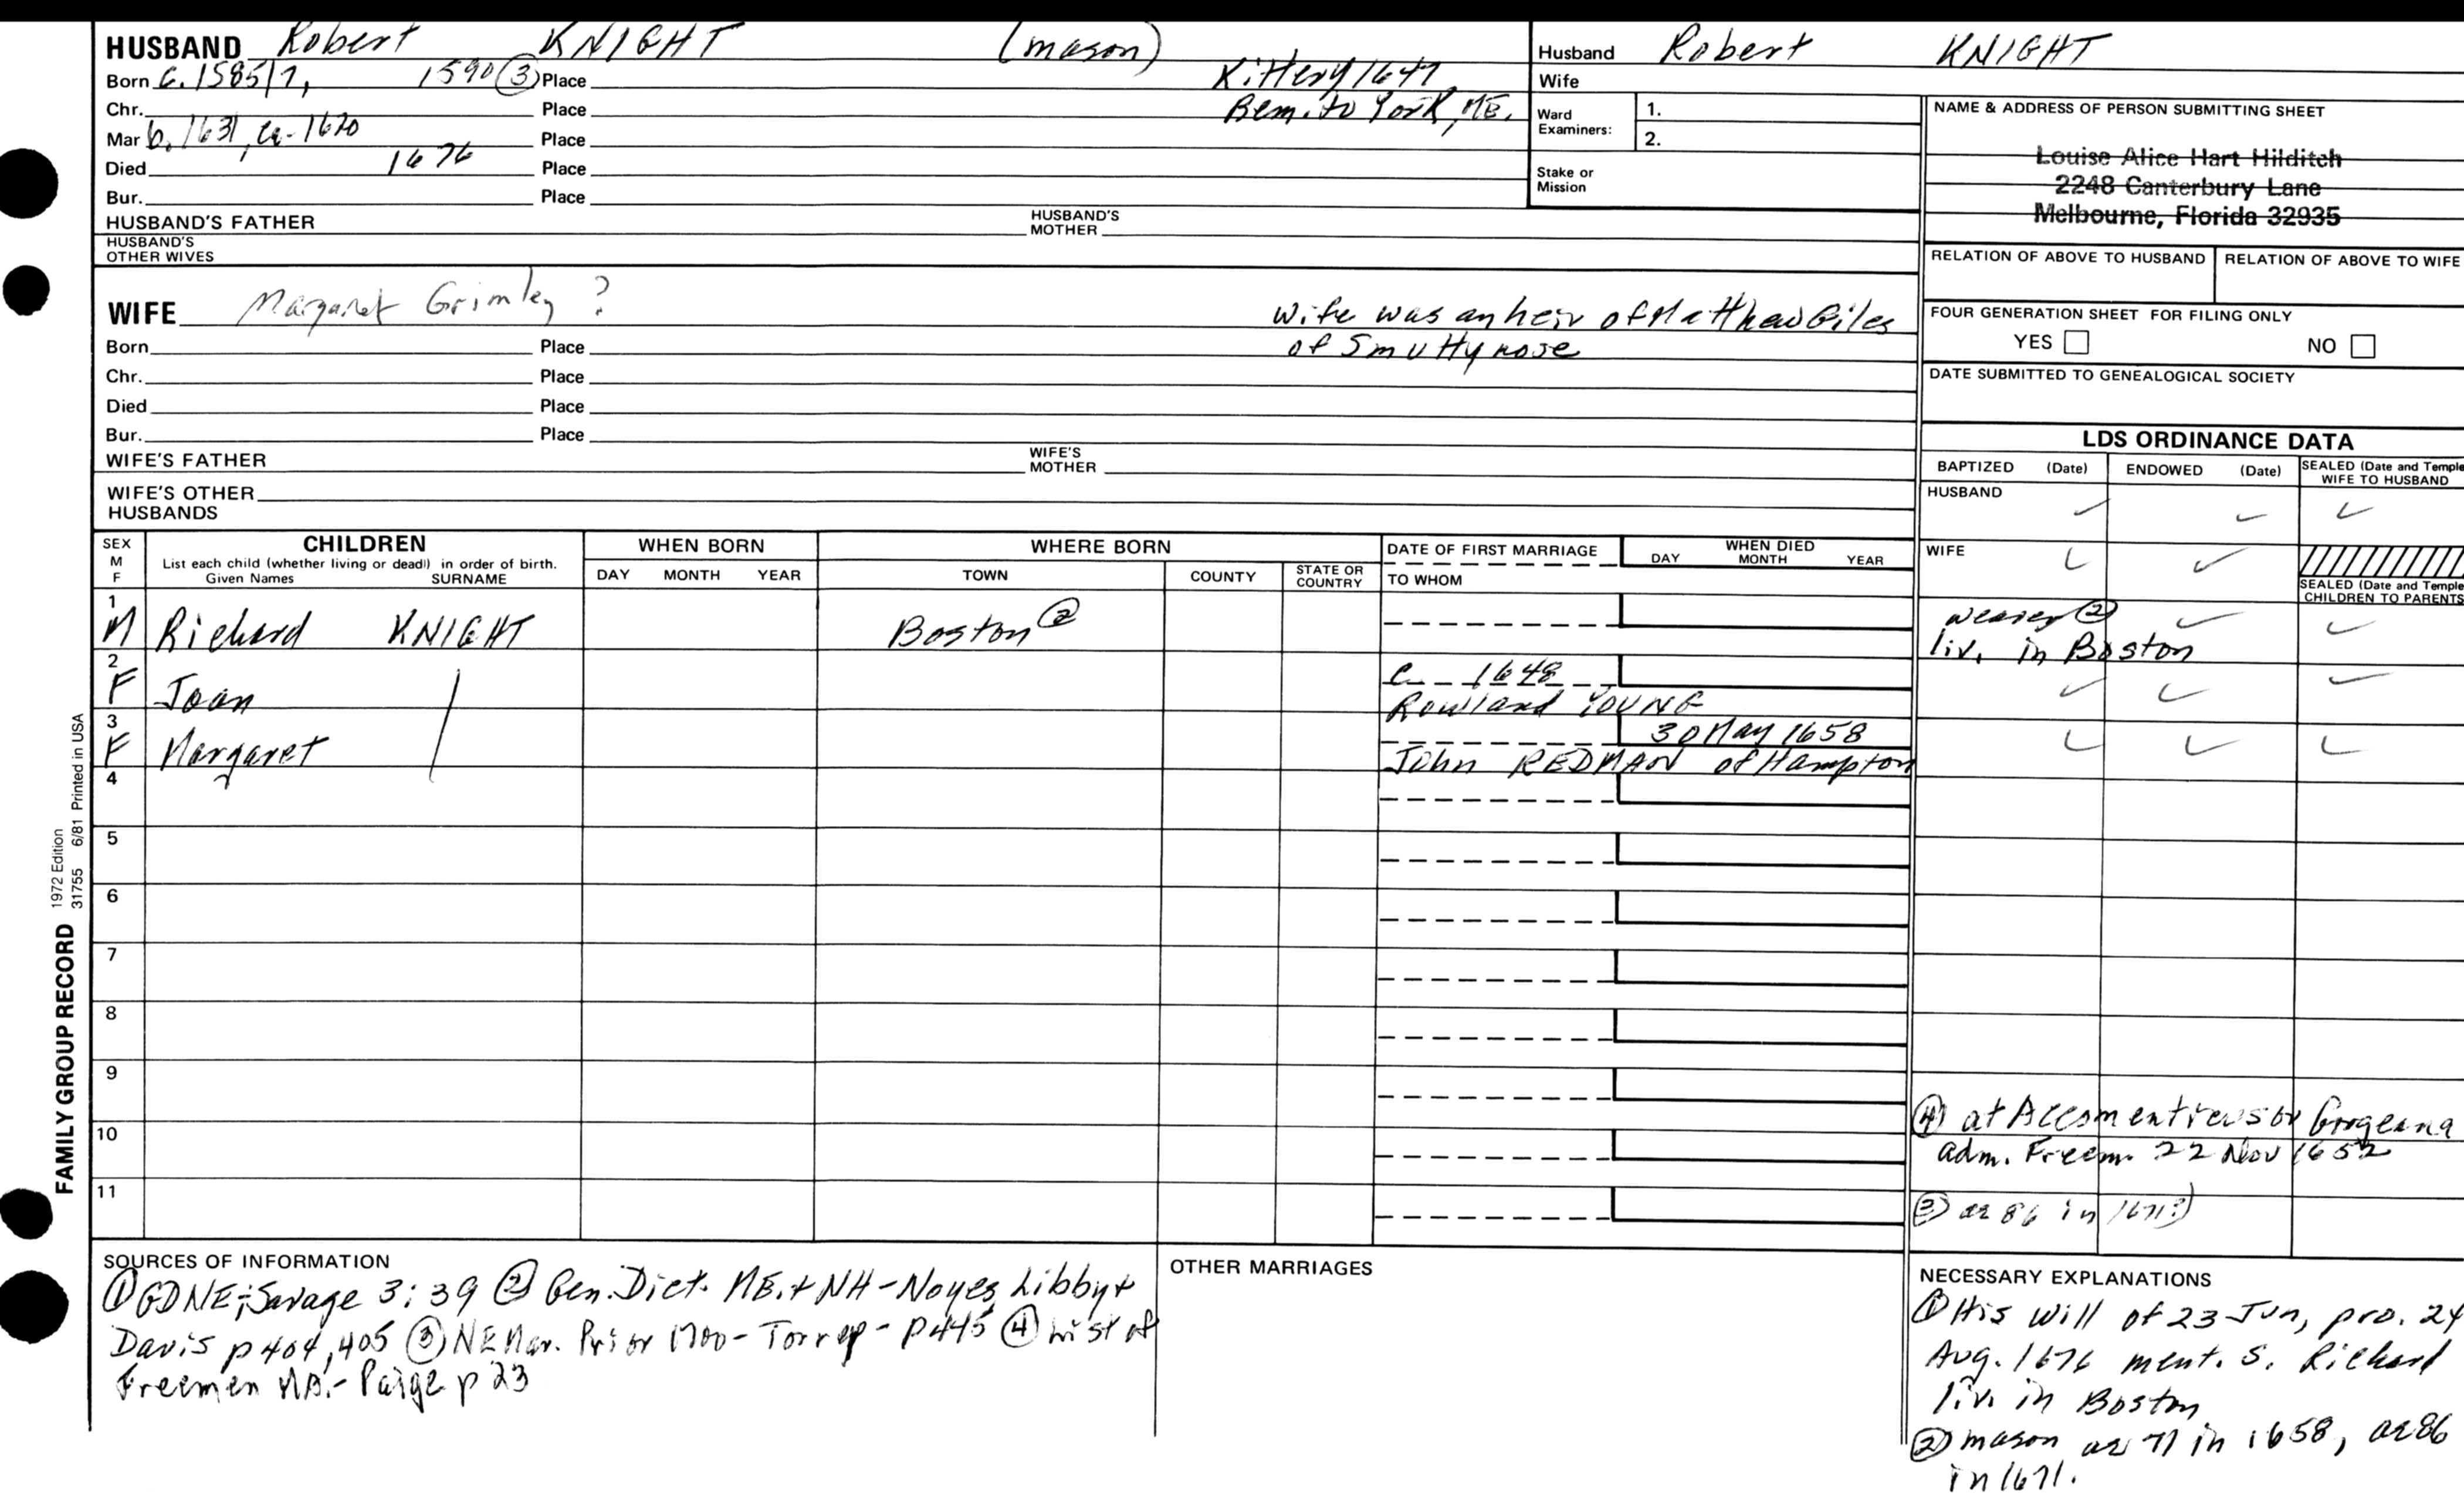 HUSBAND Robert KNIGHT (mason)
Born c. 1585/7, 1590 ③ Place Kittery 1647
Chr. Place Rem. to York, ME.
Mar b. 1631, ca-1620 Place
Died 1676 Place
Bur. Place
HUSBAND'S FATHER HUSBAND'S MOTHER
HUSBAND'S OTHER WIVES
Husband Robert KNIGHT
Wife
Ward Examiners: 1.
2.
Stake or Mission
NAME & ADDRESS OF PERSON SUBMITTING SHEET
Louise Alice Hart Hilditch
2248 Canterbury Lane
Melbourne, Florida 32935
RELATION OF ABOVE TO HUSBAND RELATION OF ABOVE TO WIFE
FOUR GENERATION SHEET FOR FILING ONLY
YES NO
DATE SUBMITTED TO GENEALOGICAL SOCIETY
WIFE Margaret Grimley ? wife was an heir of Matthew Giles
Born Place of Smuttynose
Chr. Place
Died Place
Bur. Place
WIFE'S FATHER WIFE'S MOTHER
WIFE'S OTHER HUSBANDS
LDS ORDINANCE DATA
BAPTIZED (Date) ENDOWED (Date) SEALED (Date and Temple) WIFE TO HUSBAND
HUSBAND
WIFE
SEALED (Date and Temple) CHILDREN TO PARENTS
SEX M F CHILDREN WHEN BORN WHERE BORN DATE OF FIRST MARRIAGE WHEN DIED
List each child (whether living or dead) in order of birth.
Given Names SURNAME DAY MONTH YEAR TOWN COUNTY STATE OR COUNTRY TO WHOM DAY MONTH YEAR
1 M Richard KNIGHT Boston ② weaver ②
liv. in Boston
2 F Joan c 1648
Rowland YOUNG
3 F Margaret 30 May 1658
John REDMAN of Hampton
4
5
6
7
8
9
10
11
④ at Accomentieus or Gorgeana
adm. Freem. 22 Nov 1652
③ ae 86 in 1671?)
FAMILY GROUP RECORD 1972 Edition
31755 6/81 Printed in USA
SOURCES OF INFORMATION
① GDNE; Savage 3:39 ② Gen. Dict. ME. + NH - Noyes Libby +
Davis p 404, 405 ③ NE Mar. Prior 1700 - Torrey - p 445 ④ List of
Freemen MA. - Paige p 23
OTHER MARRIAGES
NECESSARY EXPLANATIONS
① His will of 23 Jun, pro. 24
Aug. 1676 ment. s. Richard
liv. in Boston
② mason ae 71 in 1658, ae 86
in 1671.